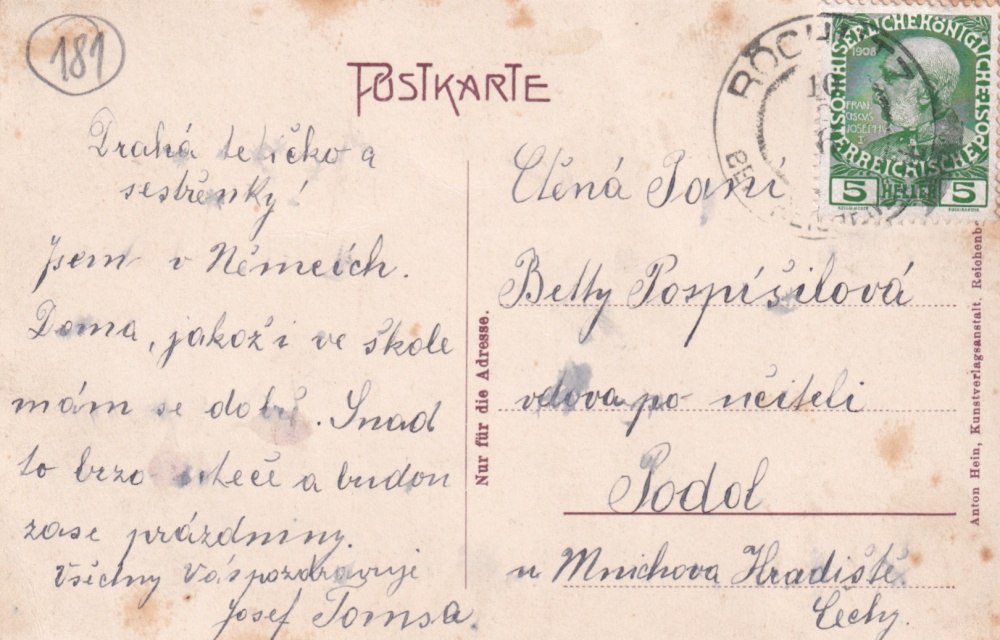 181
POSTKARTE
Drahá tetičko a
sestřenky!
Jsem v Němcích.
Doma, jakož i ve škole
mám se dobř. Snad
to brzo uteče a budou
zase prázdniny.
Všechny Vás pozdravuje
Josef Tomsa.
Nur für die Adresse.
RÖCHLITZ
KAISERLICHE KÖNIGLICHE ÖSTERREICHISCHE POST
1908
FRAN
CISCUS
JOSEPH I
5 HELLER 5
Ctěná Paní
Betty Pospíšilová
vdova po učiteli
Podol
u Mnichova Hradiště
Čechy.
Anton Hein, Kunstverlagsanstalt, Reichenb